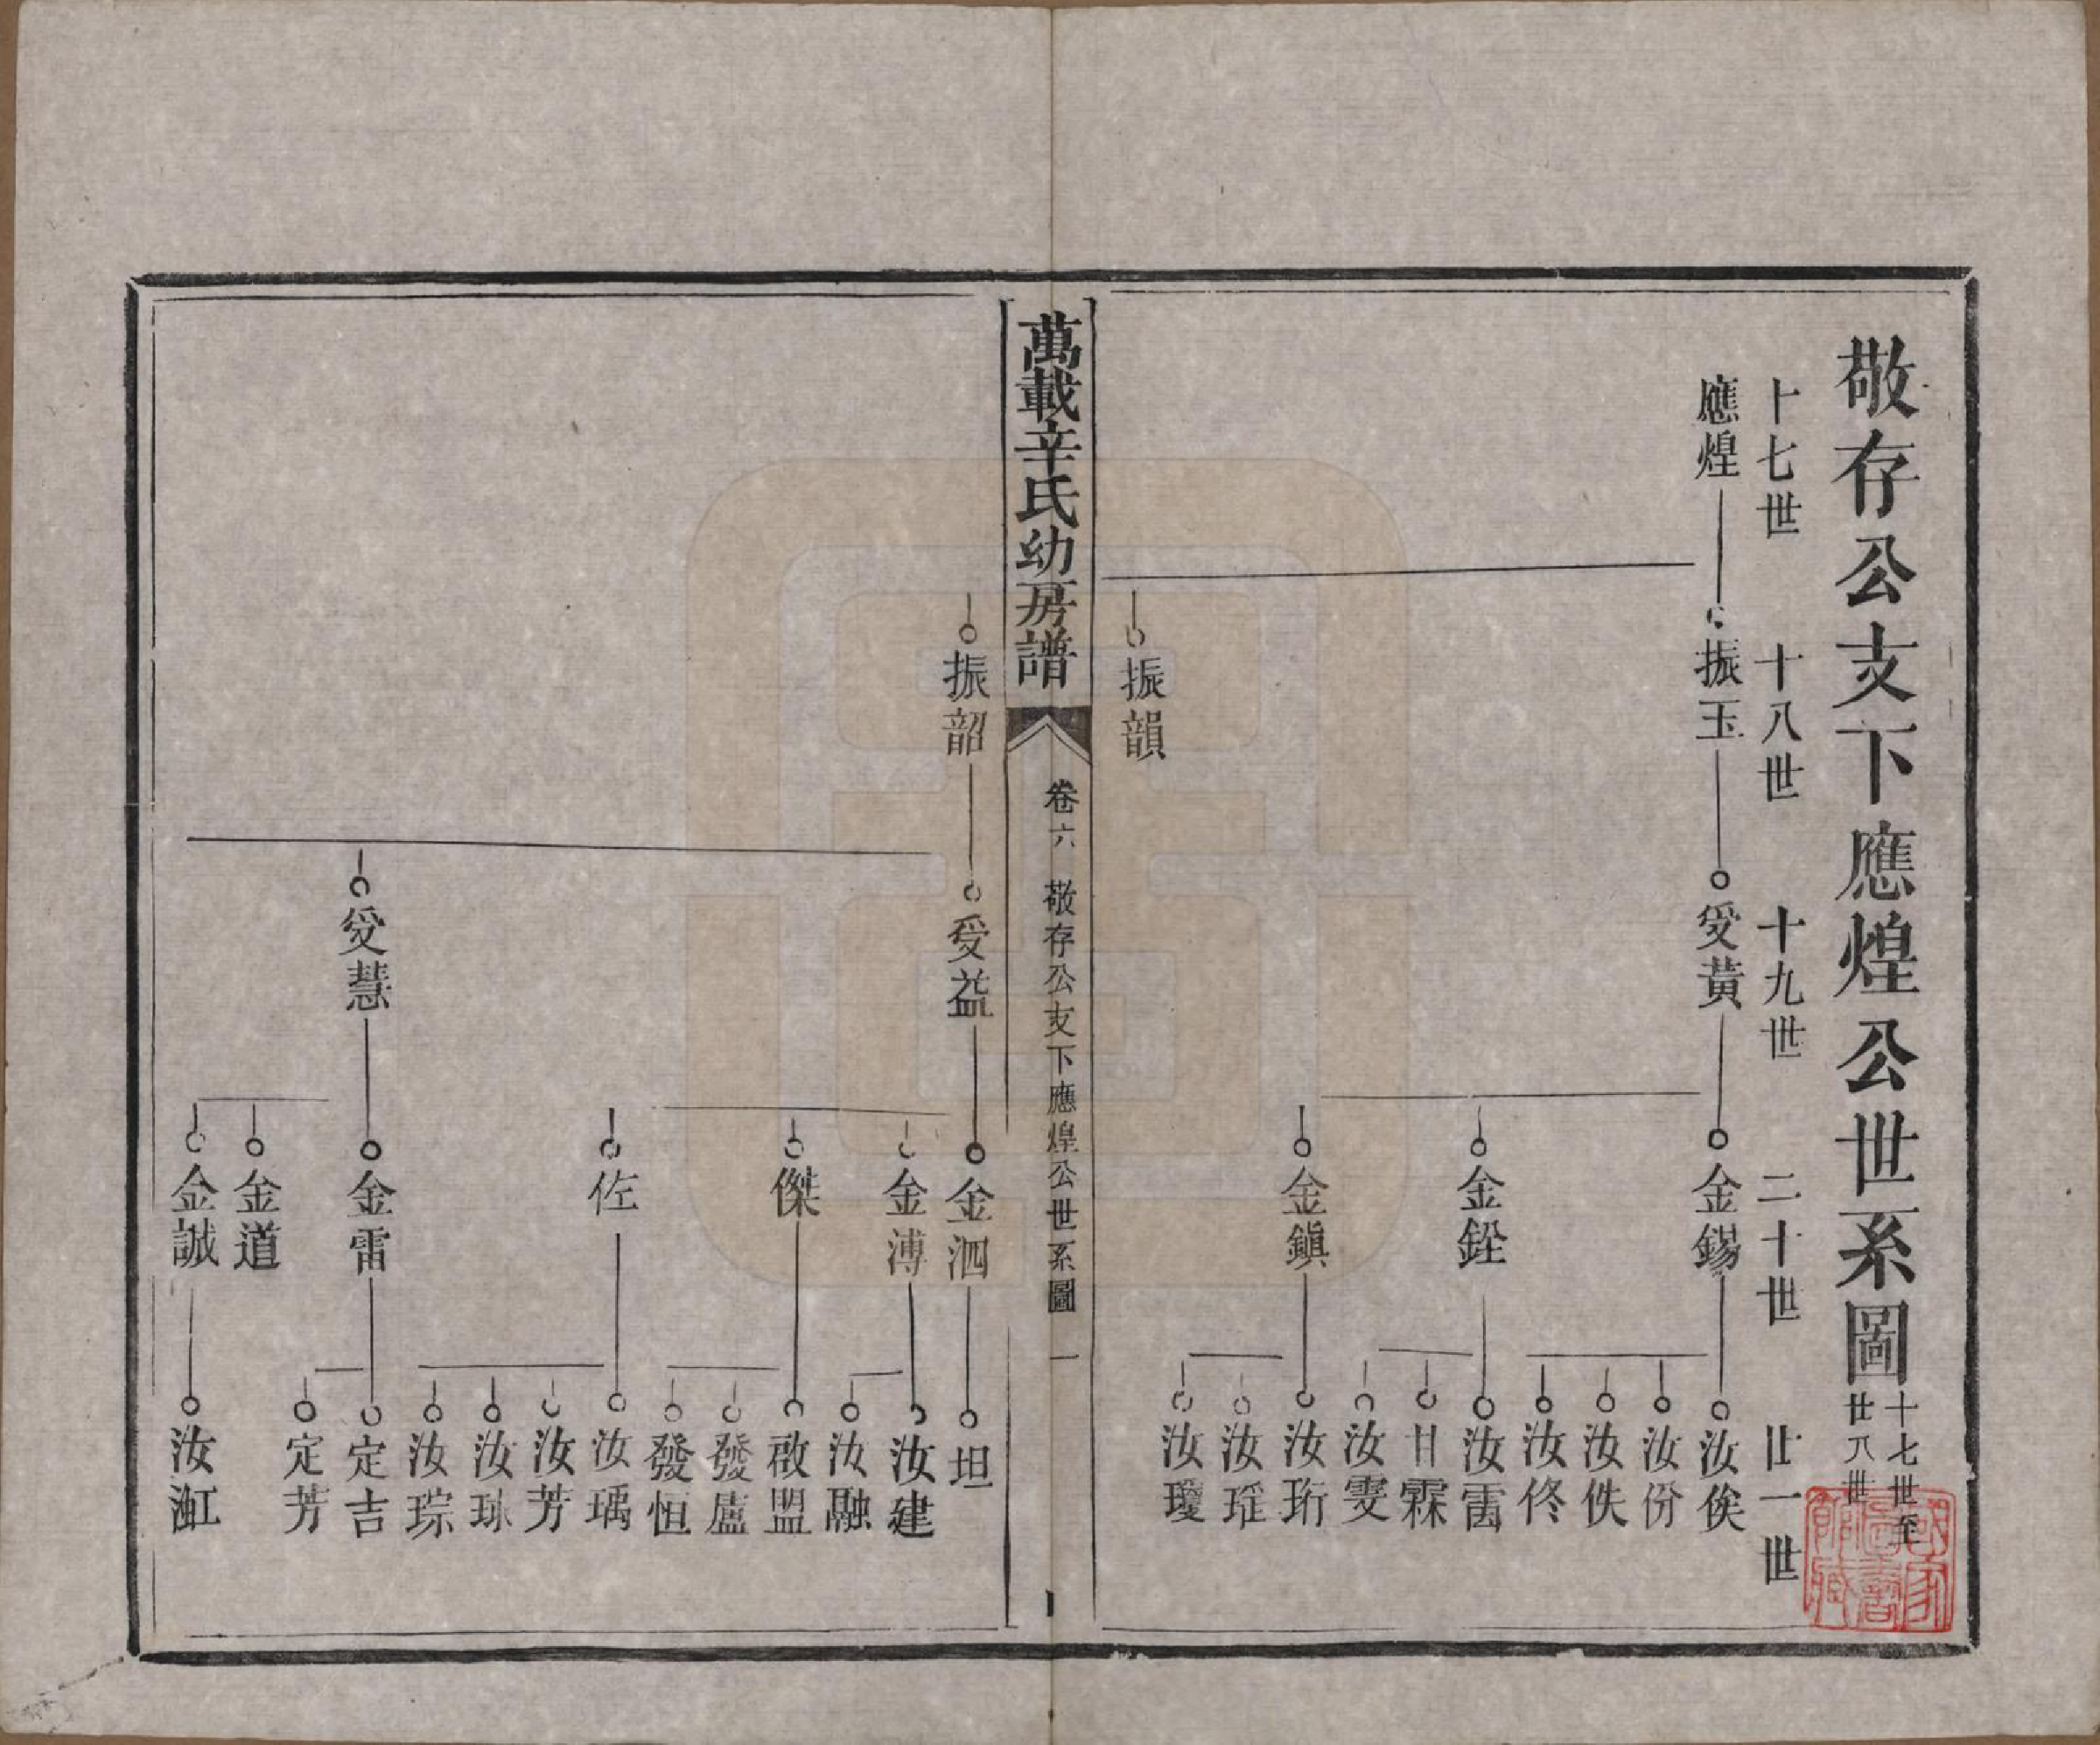 敬存公支下應煌公世系圖 十七世至廿八世
十七世 十八世 十九世 二十世 廿一世
應煌 振玉 受黃 金錫 汝俟
汝份
汝佚
汝佟
金銓 汝雷
甘霖
汝雯
金鎭 汝珩
汝瑾
汝瓊
振韻
萬載辛氏幼房譜 卷六 敬存公支下應煌公世系圖 一
振韶 受益 金泗 坦
金溥 汝建
汝融
傑 啟盟
發廬
發恒
佐 汝瑀
汝芳
汝球
汝琮
受慧 金雷 定吉
定芳
金道
金誠 汝渱
國家圖書館藏